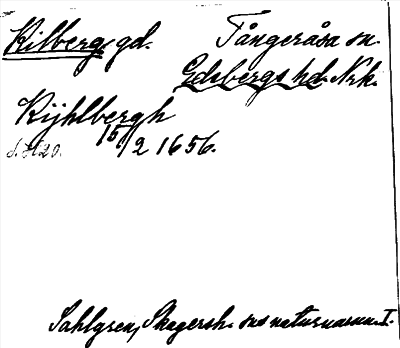 Kilberg, gd. Tångeråsa sn.
Edsbergs hd. Nrk.
Kijhlbergh
15/2 1656.
Sahlgren, Skagersh. sns naturnamn I.